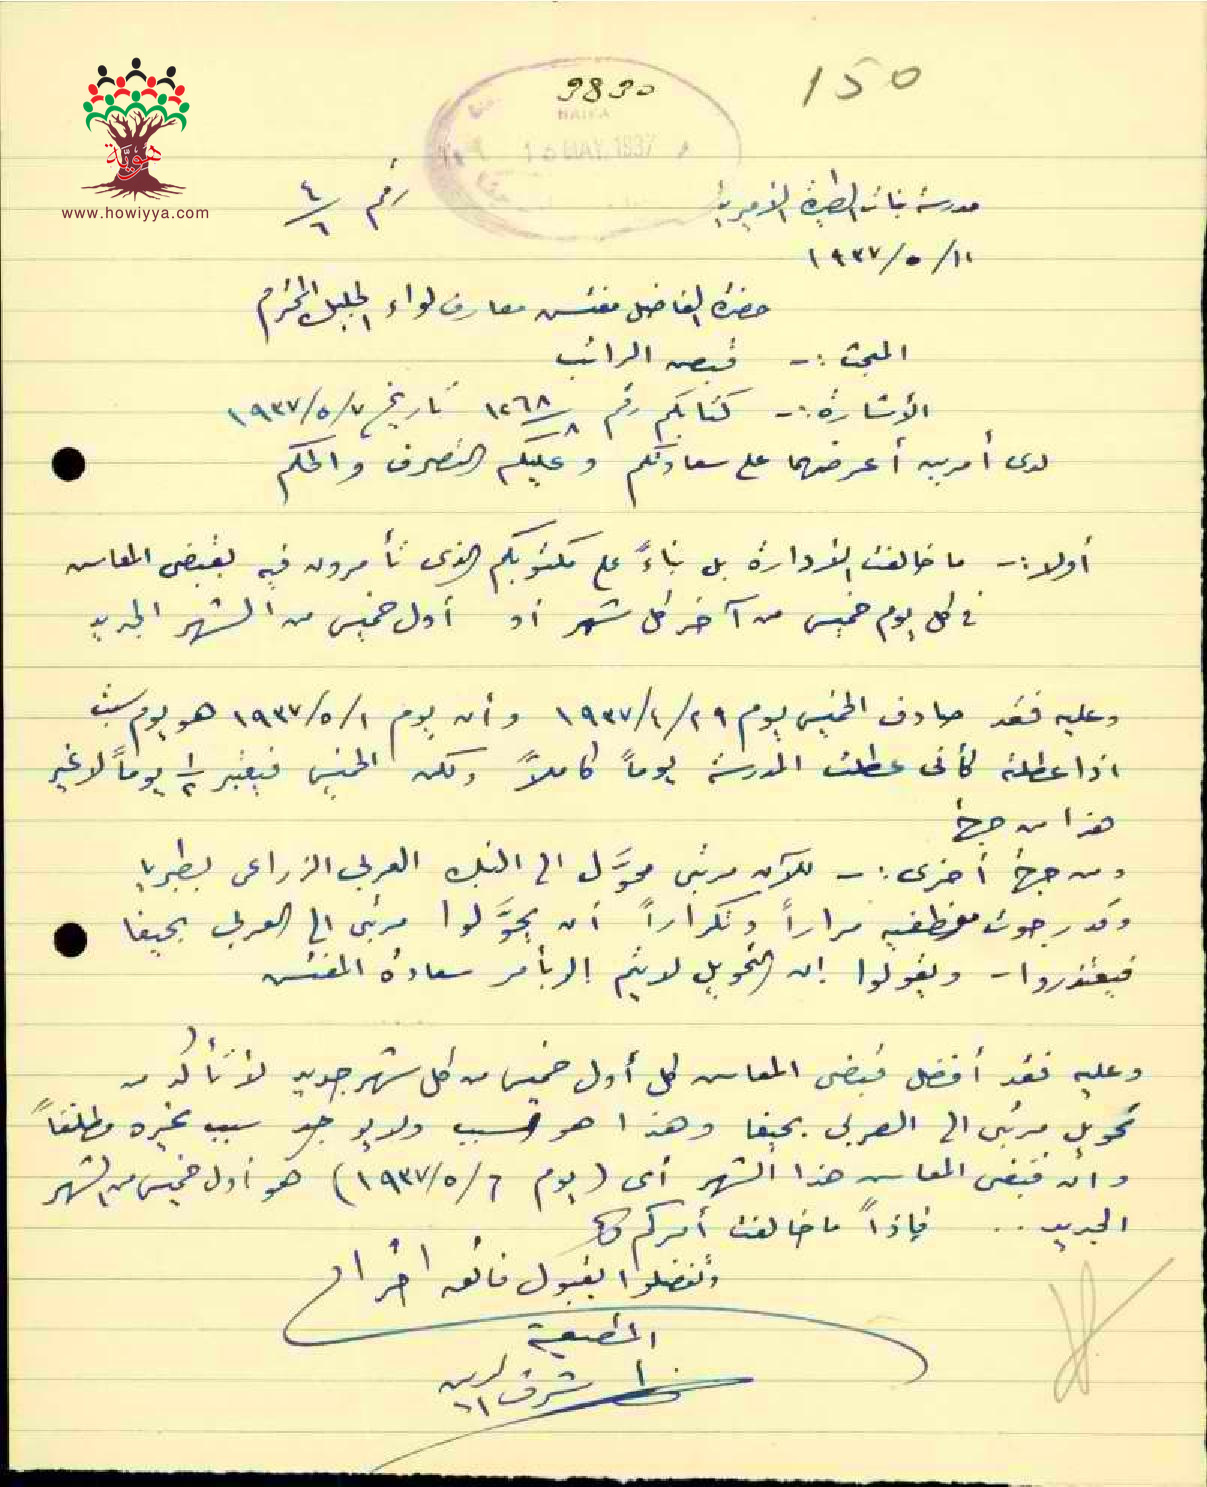 150
9830
HAIFA
10 MAY 1937
هوية
www.howiyya.com
مدرسة بنات الطيرة الأميرية
رقم ٤/٦
١١/٥/١٩٣٧
حضرة الفاضل مفتش معارف لواء الجليل المحترم
المبحث :- قبض الراتب
الأشارة :- كتابكم رقم ١٢٦٨/٨ تاريخ ٧/٥/١٩٣٧
لدى أمرين أعرضهما على سعادتكم وعليكم التصرف والحكم
أولا :- ما خالفت الإدارة بل بناءً على مكتوبكم الذى تأمرون فيه بقبض المعاش
في كل يوم خميس من آخر كل شهر أو أول خميس من الشهر الجديد
وعليه فقد صادف الخميس يوم ٢٩/٤/١٩٣٧ وأن يوم ١/٥/١٩٣٧ هو يوم سبت
اذا عطلته كأنى عطلت المدرسة يوماً كاملاً ولكن الخميس فيعتبر ١/٢ يوماً لا غير
هذا من جهة
ومن جهة أخرى :- للآن مرتبى محوَّل الى البنك العربى الزراعى بطبريا
وقد رجوت موظفيه مراراً وتكراراً أن يحوَّلوا مرتبى الى العربى بحيفا
فيعتذروا - ويقولوا إن التحويل لا يتم إلا بأمر سعادة المفتش
وعليه فقد أفضل قبض المعاش كل أول خميس من كل شهر جديد لأتأكد من
تحويل مرتبى الى العربى بحيفا وهذا هو السبب ولا يوجد سبب غيره مطلقاً
وان قبض المعاش هذا الشهر أى (يوم ٦/٥/١٩٣٧) هو أول خميس من الشهر
الجديد .. فإذاً ما خالفت أمركم
وتفضلوا بقبول فائق احترام
المطيعة
شرف الدين